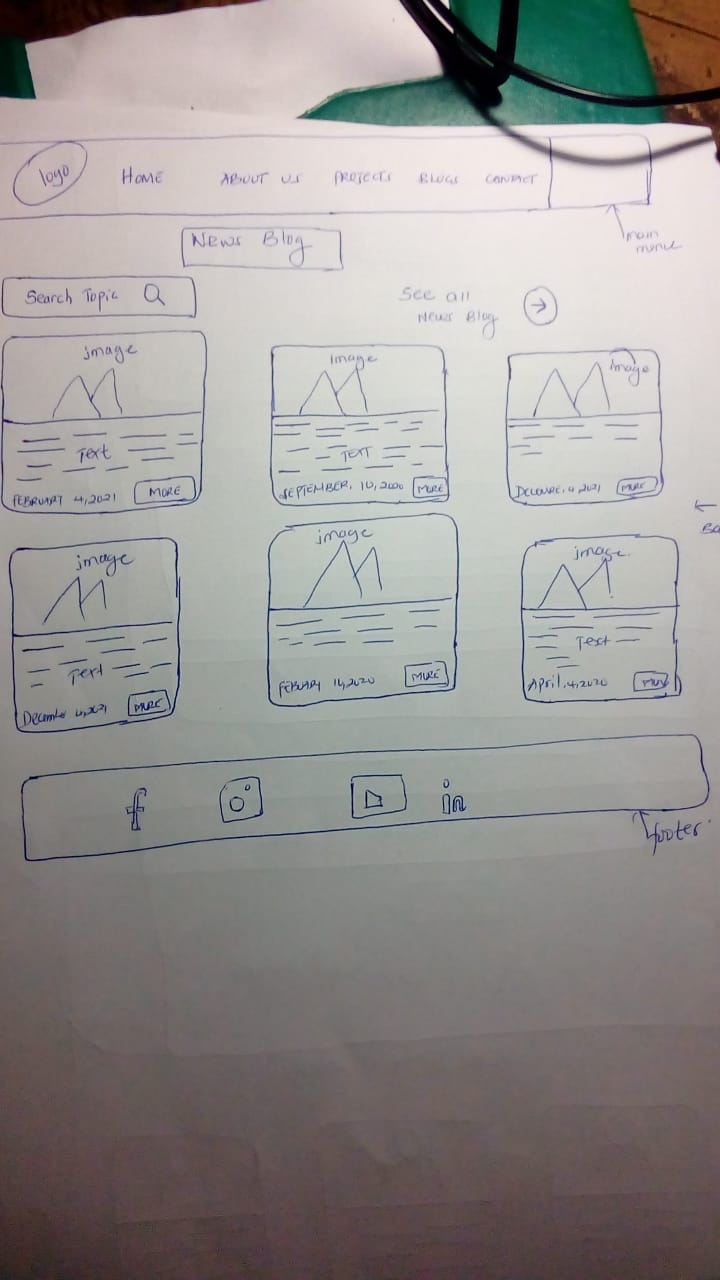 logo HOME ABOUT US PROJECTS BLOGS CONTACT
main
News Blog
Search Topic
See all
News Blog
image
Text
FEBRUARY 4,2021 MORE
image
TEXT
SEPTEMBER, 10,2020 MORE
image
MORE
image
Text
MORE
image
FEBUARY 14,2020 MORE
image
Text
April,4,2020
f
in
footer